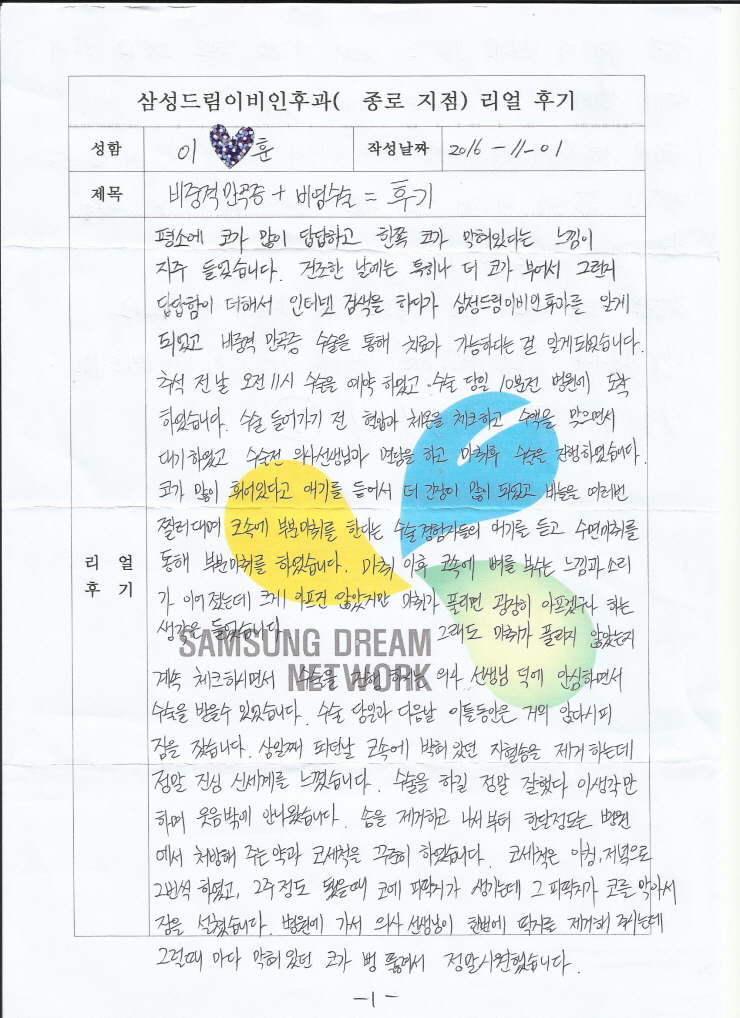 삼성드림이비인후과( 종로 지점) 리얼 후기
성함 이 훈 작성날짜 2016-11-01
제목 비중격만곡증 + 비염수술 = 후기
평소에 코가 많이 답답하고 한쪽 코가 막혀있다는 느낌이
자주 들었습니다. 건조한 날에는 특히나 더 코가 부어서 그런지
답답함이 더해서 인터넷 검색을 하다가 삼성드림이비인후과를 알게
되었고 비중격 만곡증 수술을 통해 치료가 가능하다는 걸 알게되었습니다.
추석 전날 오전 11시 수술을 예약하였고 수술 당일 10분전 병원에 도착
하였습니다. 수술 들어가기 전 혈압과 체온을 체크하고 수액을 맞으면서
대기하였고 수술전 의사선생님과 면담을 하고 마취후 수술을 진행하였습니다.
코가 많이 휘어있다고 얘기를 들어서 더 긴장이 많이 되었고 바늘을 여러번
찔러대며 코속에 부분마취를 한다는 수술경험자들의 얘기를 듣고 수면마취를
통해 부분마취를 하였습니다. 마취 이후 코속에 뼈를 부수는 느낌과 소리
가 이어졌는데 크게 아프진 않았지만 마취가 풀리면 굉장히 아프겠구나 하는
생각은 들었습니다 그래도 마취가 풀리지 않았는지
리 얼
후 기
SAMSUNG DREAM
NETWORK
계속 체크하시면서 수술을 진행 하시는 의사 선생님 덕에 안심하면서
수술을 받을수 있었습니다. 수술 당일과 다음날 이틀동안은 거의 앉다시피
잠을 잤습니다. 삼일째 되던날 코속에 박혀 있던 지혈솜을 제거 하는데
정말 진심 신세계를 느꼈습니다. 수술을 하길 정말 잘했다 이생각만
하며 웃음밖에 안나왔습니다. 솜을 제거하고 나서부터 한달정도는 병원
에서 처방해 주는 약과 코세척을 꾸준히 하였습니다. 코세척은 아침,저녁으로
2번씩 하였고, 2주정도 됐을때 코에 피딱지가 생기는데 그 피딱지가 코를 막아서
잠을 설쳤습니다. 병원에 가서 의사 선생님이 한번에 딱지를 제거해 주시는데
그럴때 마다 막혀 있던 코가 뻥 뚫려서 정말시원했습니다.
-1-